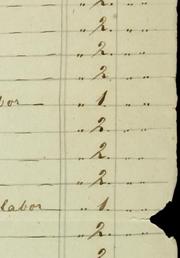 „ 2. „ „
„ 2. „ „
„ 2. „ „
„ 2. „ „
bor — „ 1. „ „
„ 2. „ „
„ 2. „ „
„ 2. „ „
labor — „ 1. „ „
„ 2. „ „
2